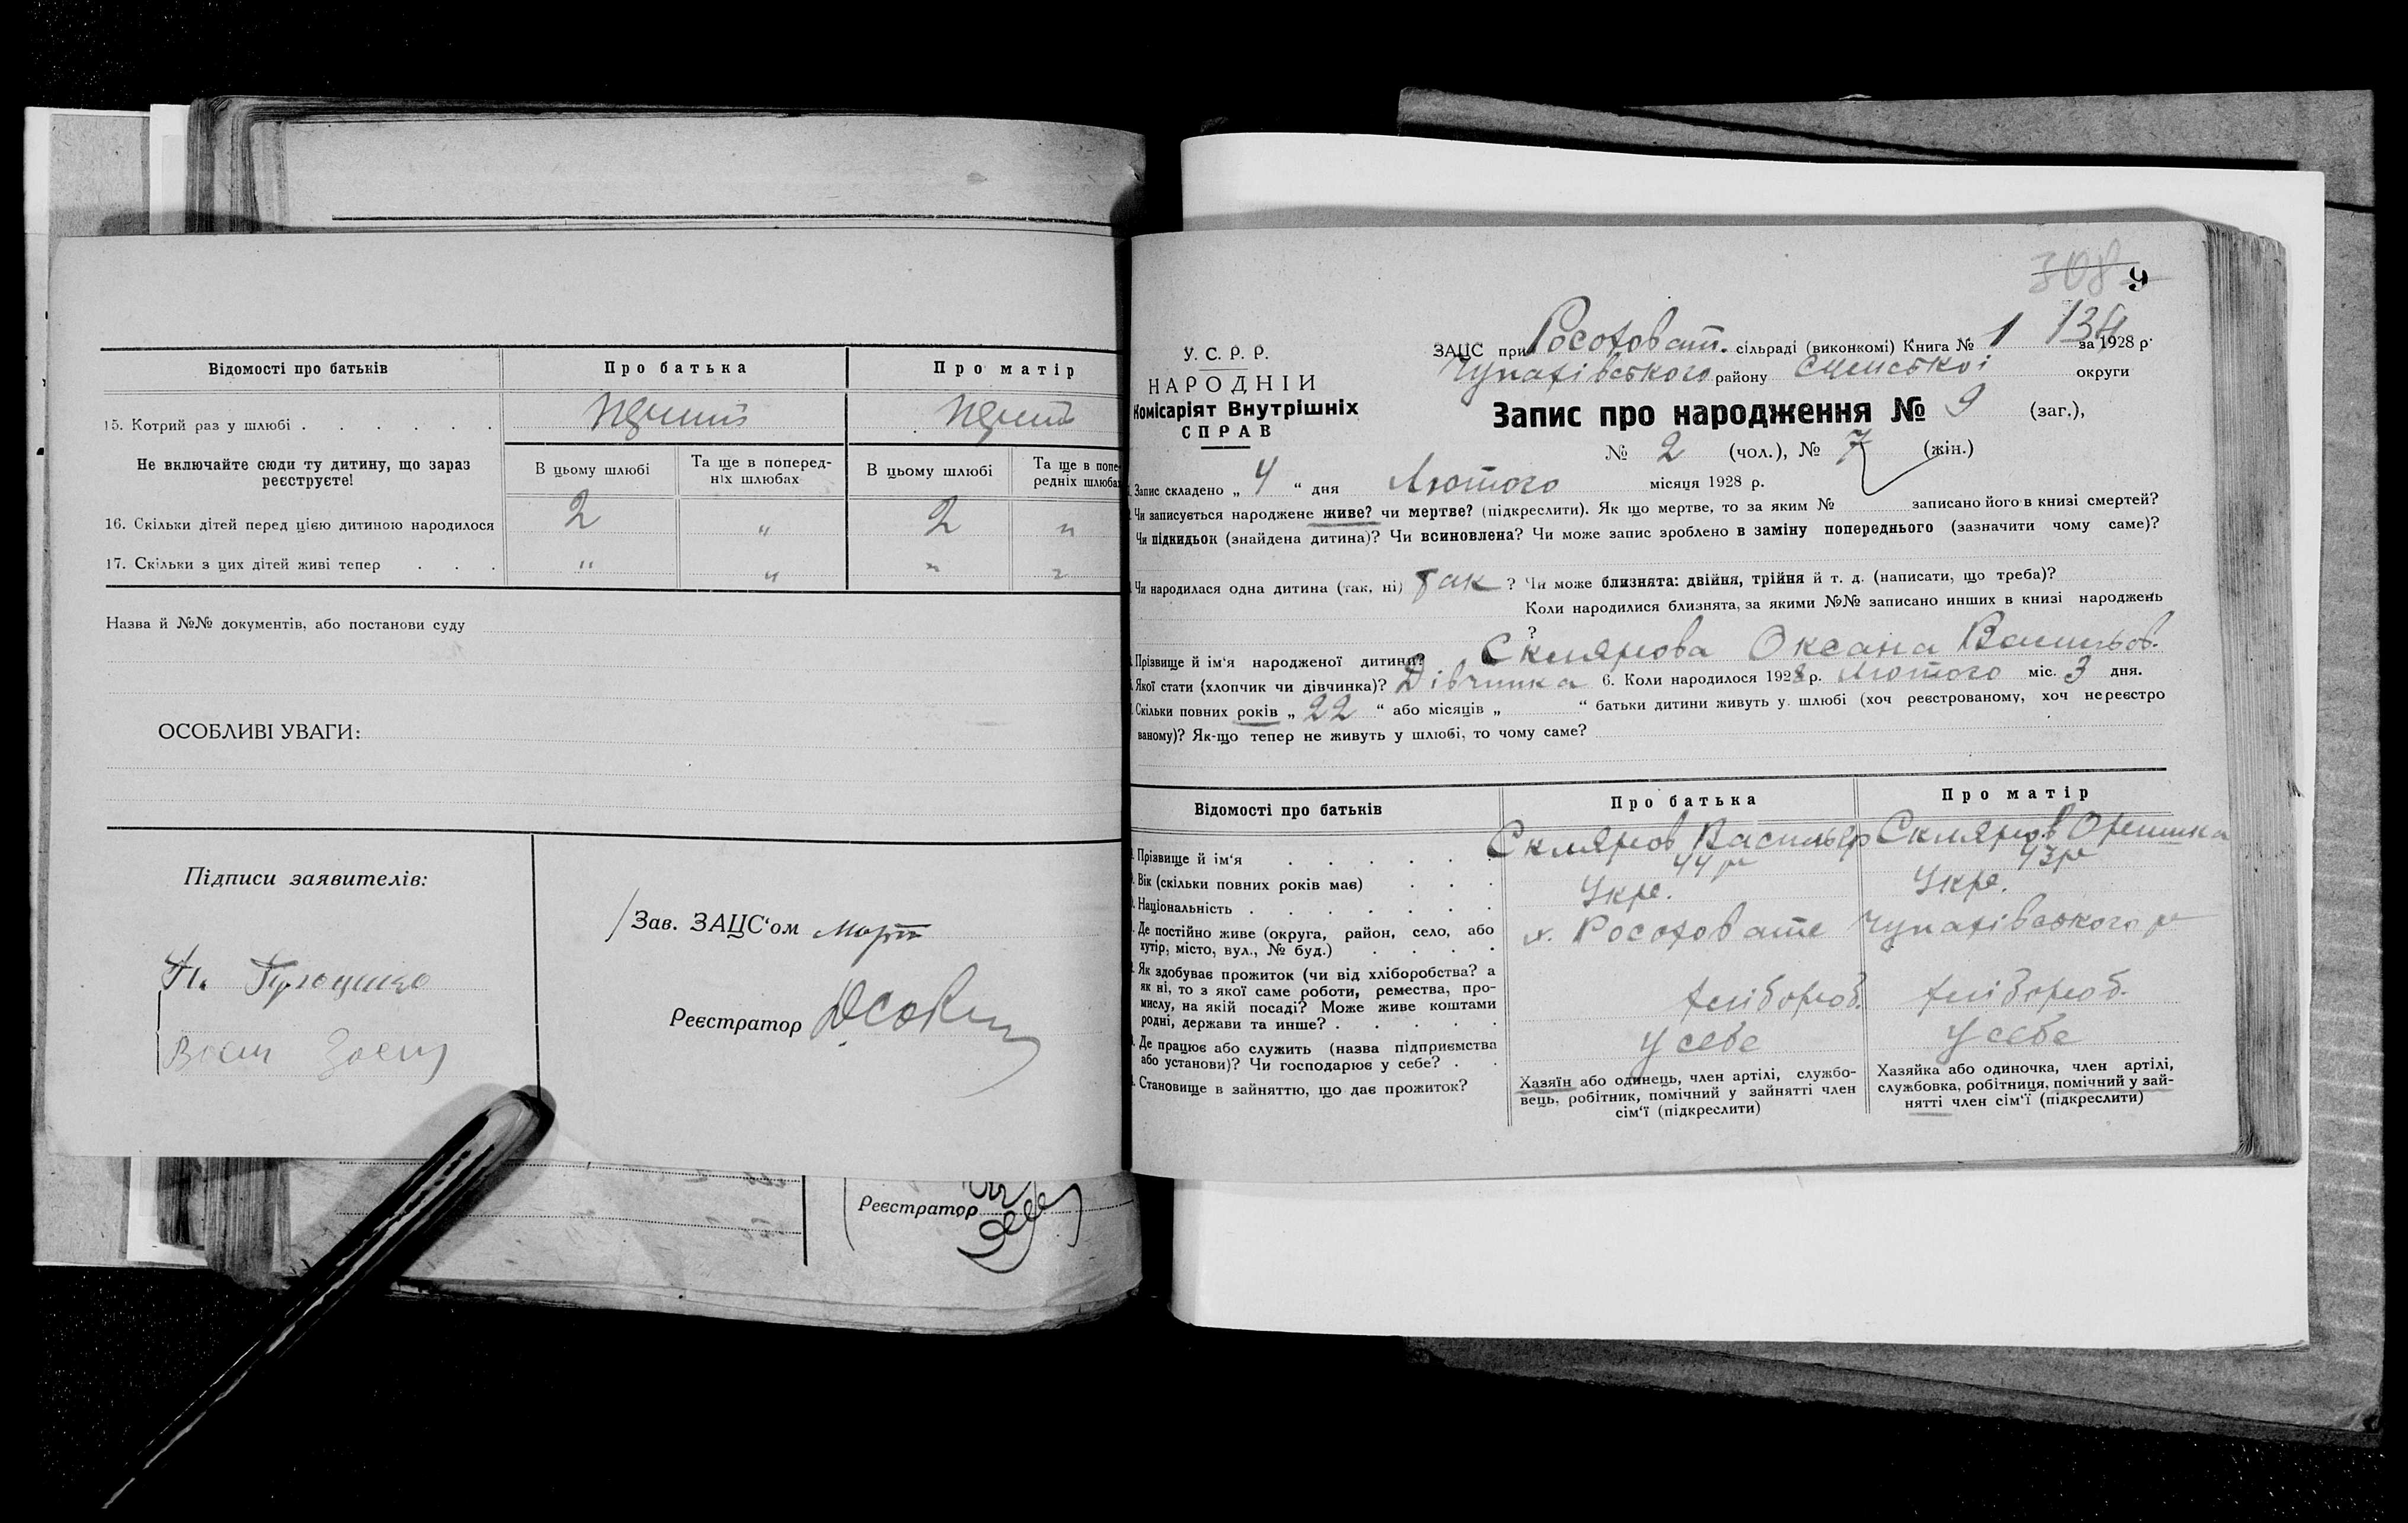 Відомості про батьків
Про батька
Про матір
15. Котрий раз у шлюбі . . . . . .
Не включайте сюди ту дитину, що зараз
реєструєте!
В цьому шлюбі
Та ще в поперед-
ніх шлюбах
В цьому шлюбі
Та ще в попе-
редніх шлюбах
16. Скільки дітей перед цією дитиною народилося 2 " 2 "
17. Скільки з цих дітей живі тепер . . . " " " "
Назва й №№ документів, або постанови суду
ОСОБЛИВІ УВАГИ:
Підписи заявителів:
Зав. ЗАЦС'ом
Реєстратор
Реєстратор
308 9
134
У. С. Р. Р.
НАРОДНІЙ
Комісаріят Внутрішніх
СПРАВ
ЗАЦС при Росоховат. сільраді (виконкомі) Книга № 1 за 1928 р.
Чупахівського району Сумської округи
Запис про народження № 9 (заг.),
№ 2 (чол.), № 7 (жін.)
Запис складено „ 4 “ дня Лютого місяця 1928 р.
Чи записується народжене живе? чи мертве? (підкреслити). Як що мертве, то за яким № записано його в книзі смертей?
Чи підкидьок (знайдена дитина)? Чи всиновлена? Чи може запис зроблено в заміну попереднього (зазначити чому саме)?
Чи народилася одна дитина (так, ні) Так ? Чи може близнята: двійня, трійня й т. д. (написати, що треба)?
Коли народилися близнята, за якими №№ записано инших в книзі народжень
?
Прізвище й ім'я народженої дитини? Склярова Оксана Васильов.
Якої стати (хлопчик чи дівчинка)? Дівчинка 6. Коли народилося 1928 р. Лютого міс. 3 дня.
Скільки повних років „ 22 “ або місяців „ “ батьки дитини живуть у шлюбі (хоч реєстрованому, хоч нереєстро
ваному)? Як-що тепер не живуть у шлюбі, то чому саме?
Відомості про батьків
Про батька
Про матір
Прізвище й ім'я . . . . . . Скляров Василь Скляров Оришка
Вік (скільки повних років має) . . . 44 р 43 р
Національність . . . . . . . Укр. Укр.
Де постійно живе (округа, район, село, або
хутір, місто, вул., № буд.) . . . .
х. Росоховате Чупахівського р
Як здобуває прожиток (чи від хліборобства? а
як ні, то з якої саме роботи, ремества, про-
мислу, на якій посаді? Може живе коштами
родні, держави та инше? . . . . .
хлібороб. хлібороб.
Де працює або служить (назва підприємства
або установи)? Чи господарює у себе? . .
У себе У себе
Становище в зайняттю, що дає прожиток?
Хазяїн або одинець, член артілі, службо-
вець, робітник, помічний у зайнятті член
сім'ї (підкреслити)
Хазяйка або одиночка, член артілі,
службовка, робітниця, помічний у зай-
нятті член сім'ї (підкреслити)